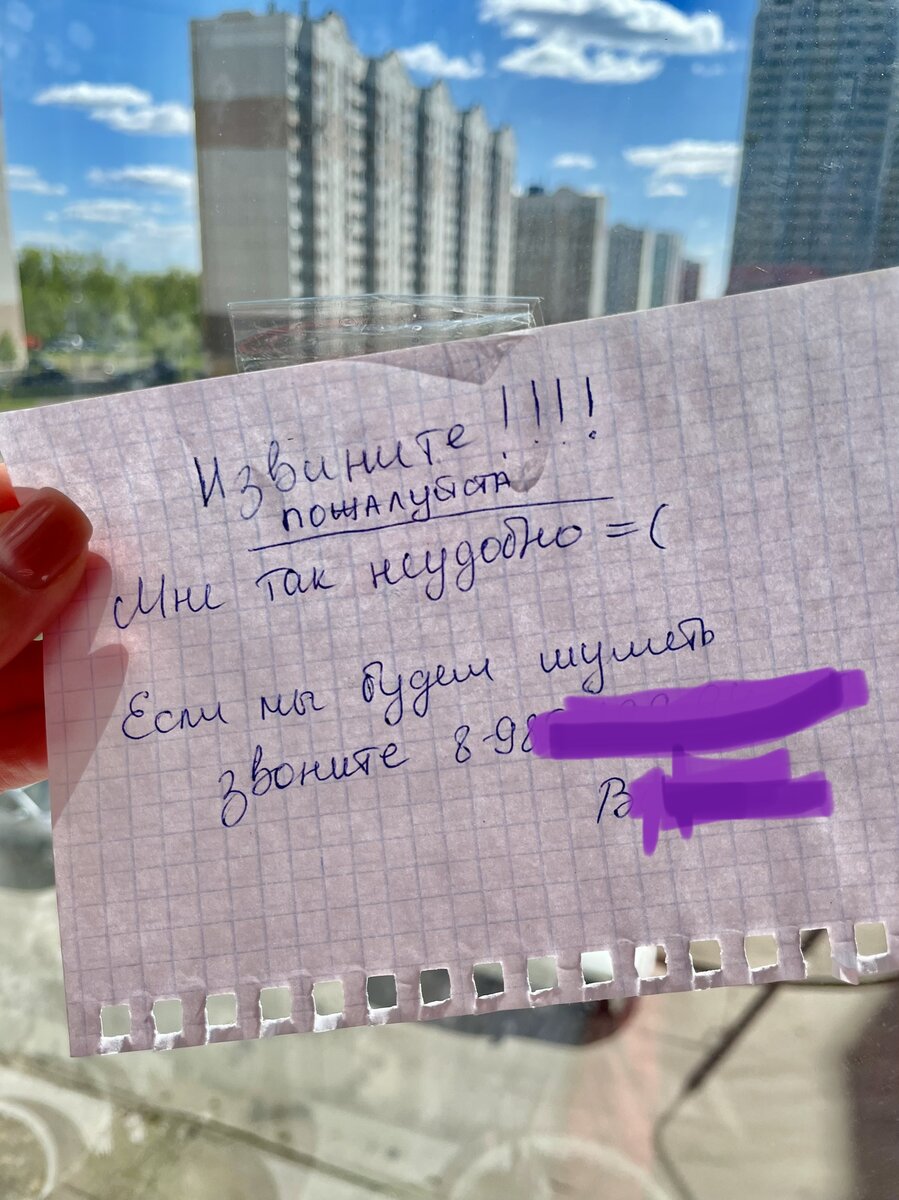 Извините !!!!
пожалуйста
Мне так неудобно =(
Если мы будем шуметь
звоните 8-98
В